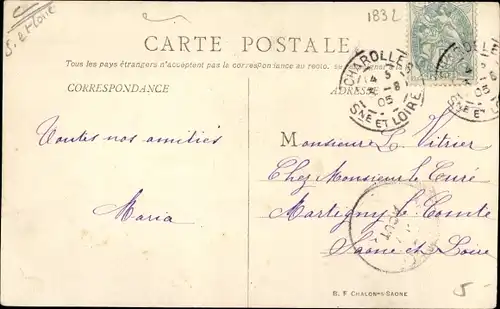 S. et Loire
1832
CARTE POSTALE
Tous les pays étrangers n'acceptent pas la correspondance au recto.
CORRESPONDANCE
ADRESSE
CHAROLLES
14
8
05
SNE ET LOIRE
CHAROLLES
05
SNE ET LOIRE
Toutes nos amitiés
Maria
Monsieur L. Vitrier
Chez Monsieur le Curé
Martigny le Comte
Saône et Loire
AOUT
B. F. CHALON-s-SAONE
5-